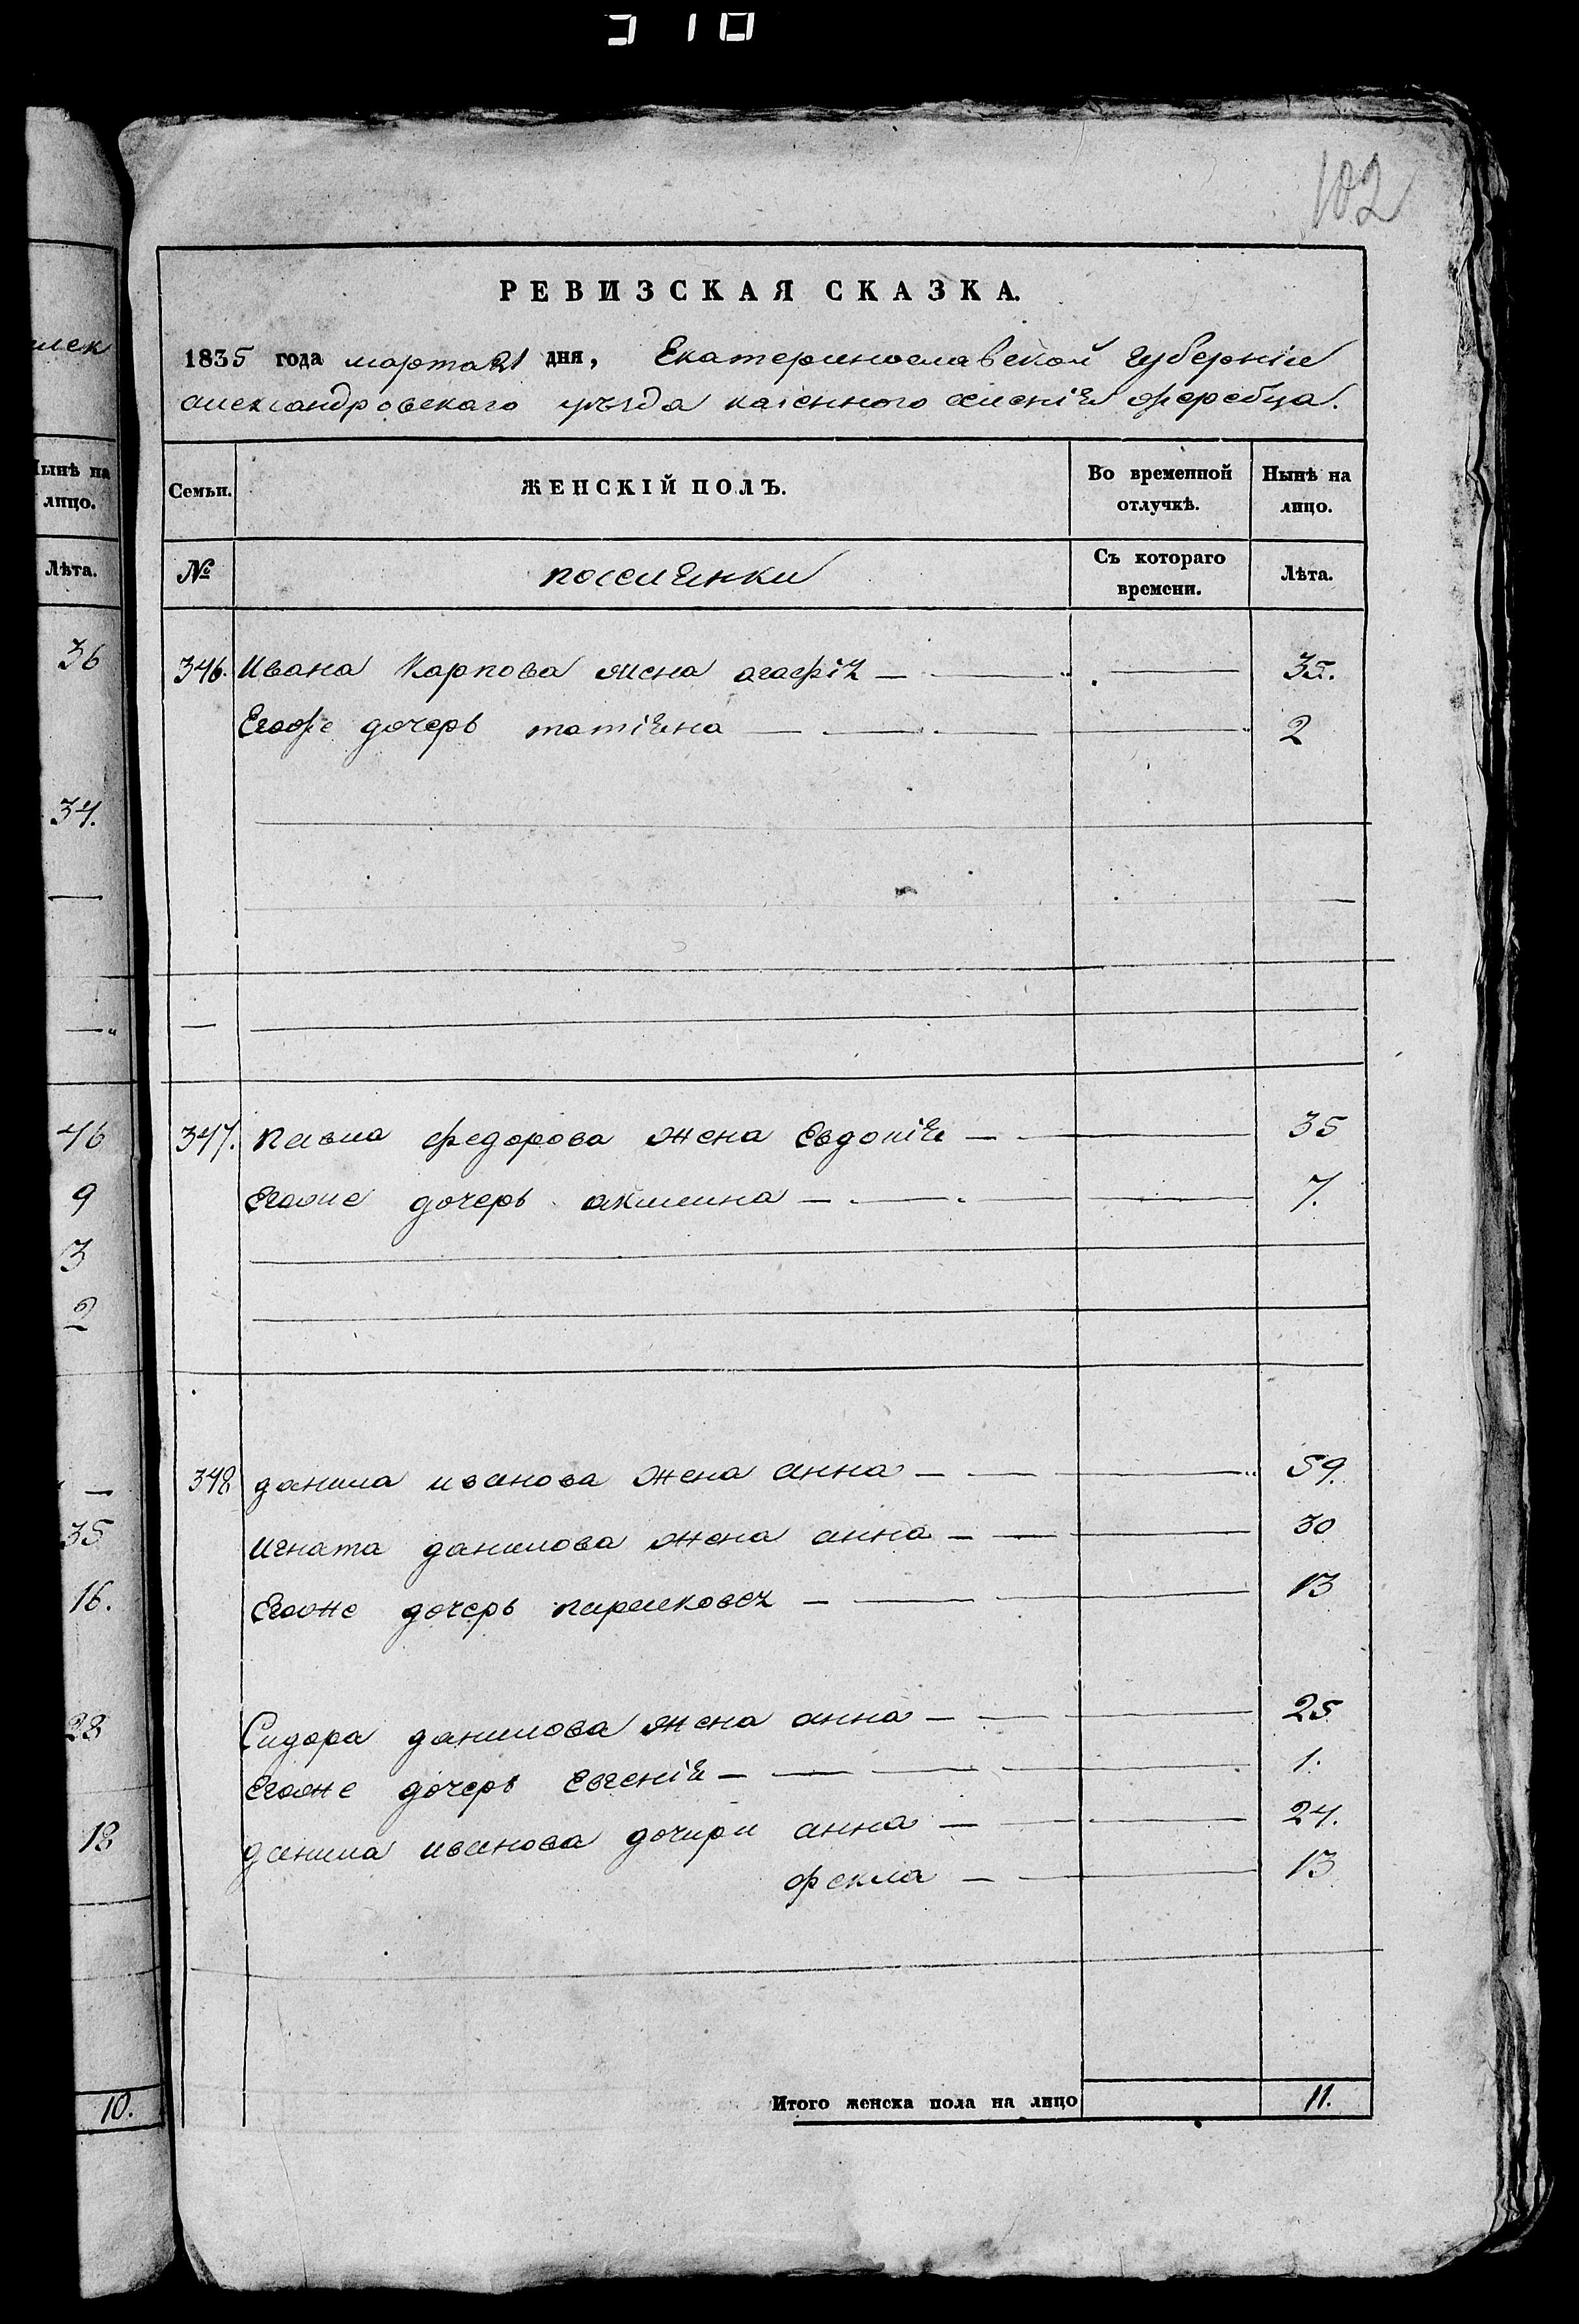 310
102
РЕВИЗСКАЯ СКАЗКА.
1835 года марта 21 дня, Екатеринославской губерніи
александровского уѣзда казенного селенія жеребца.
Семьи. ЖЕНСКІЙ ПОЛЪ. Во временной отлучкѣ. Нынѣ на лицо.
№ поселянки Съ котораго времени. Лѣта.
346. Ивана Карпова жена агафія 35.
Егоже дочерь татіяна 2
347. павла федорова жена Евдокія 35
Егоже дочерь акилина 7.
348 данила иванова жена анна 59.
игната данилова жена анна 30
Егоже дочерь парасковея 13
Сидора данилова жена анна 25
Егоже дочерь Евгенія 1.
данила иванова дочири анна 24.
фекла 13
Итого женска пола на лицо 11.
Нынѣ на
лицо.
Лѣта.
36
34.
46
9
3
2
35
16.
28
18
10.